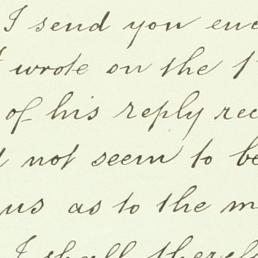 I send you enc
I wrote on the 1
of his reply rec
not seem to be
us as to the m
I shall theref